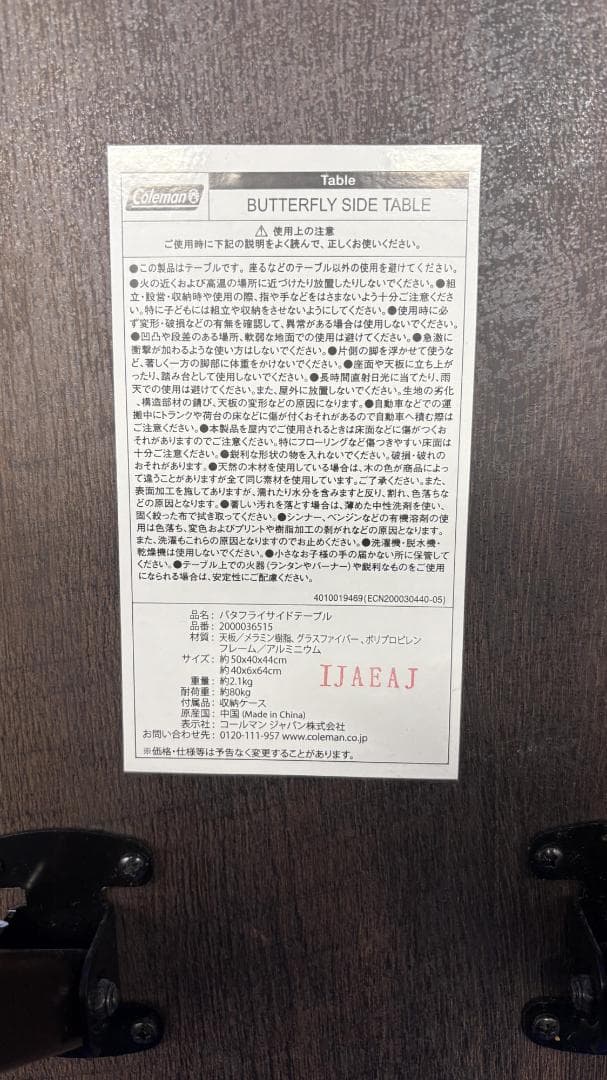 Table
Coleman
BUTTERFLY SIDE TABLE
⚠ 使用上の注意
ご使用時に下記の説明をよく読んで、正しくお使いください。
●この製品はテーブルです。座るなどのテーブル以外の使用を避けてください。
●火の近くおよび高温の場所に近づけたり放置したりしないでください。●組
立・設営・収納時や使用の際、指や手などをはさまないよう十分ご注意くださ
い。特に子どもには組立や収納をさせないようにしてください。●使用時に必
ず変形・破損などの有無を確認して、異常がある場合は使用しないでください。
●凹凸や段差のある場所、軟弱な地面での使用は避けてください。●急激に
衝撃が加わるような使い方はしないでください。●片側の脚を浮かせて使うな
ど、著しく一方の脚部に体重をかけないでください。●座面や天板に立ち上が
ったり、踏み台として使用しないでください。●長時間直射日光に当てたり、雨
天での使用は避けてください。また、屋外に放置しないでください。生地の劣化
、構造部材の錆び、天板の変形などの原因になります。●自動車などでの運
搬中にトランクや荷台の床などに傷が付くおそれがあるので自動車へ積む際は
ご注意ください。●本製品を屋内でご使用されるときは床面などに傷がつくお
それがありますのでご注意ください。特にフローリングなど傷つきやすい床面は
十分ご注意ください。●鋭利な形状の物を入れないでください。破損・破れの
おそれがあります。●天然の木材を使用している場合は、木の色が商品によっ
て違うことがありますが全て同じ素材を使用しています。ご了承ください。また、
表面加工を施してありますが、濡れたり水分を含みますと反り、割れ、色落ちな
どの原因となります。●著しい汚れを落とす場合は、薄めた中性洗剤を使い、
固く絞った布で拭き取ってください。●シンナー、ベンジンなどの有機溶剤の使
用は色落ち、変色およびプリントや樹脂加工の剥がれなどの原因となります。
また、洗濯もこれらの原因となりますのでお止めください。●洗濯機・脱水機・
乾燥機は使用しないでください。●小さなお子様の手の届かない所に保管して
ください。●テーブル上での火器(ランタンやバーナー)や鋭利なものをご使用
になられる場合は、安定性にご配慮ください。
4010019469(ECN200030440-05)
品名: バタフライサイドテーブル
品番: 2000036515
材質: 天板/メラミン樹脂、グラスファイバー、ポリプロピレン
フレーム/アルミニウム
サイズ: 約50x40x44cm
約40x6x64cm
重量: 約2.1kg
耐荷重: 約80kg
付属品: 収納ケース
原産国: 中国(Made in China)
表示社: コールマン ジャパン株式会社
お問い合わせ先: 0120-111-957 www.coleman.co.jp
※価格・仕様等は予告なく変更することがあります。
IJAEAJ